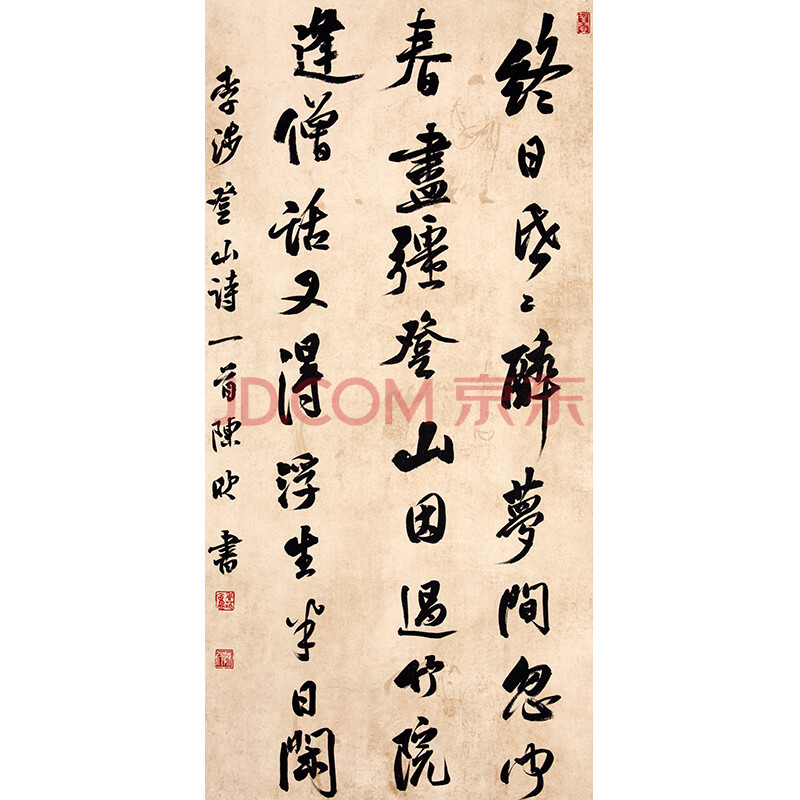 終日昏〻醉夢間忽聞
春盡彊登山因過竹院
逢僧話又得浮生半日閑
李涉登山诗一首陳欣書
JDCOM 京东